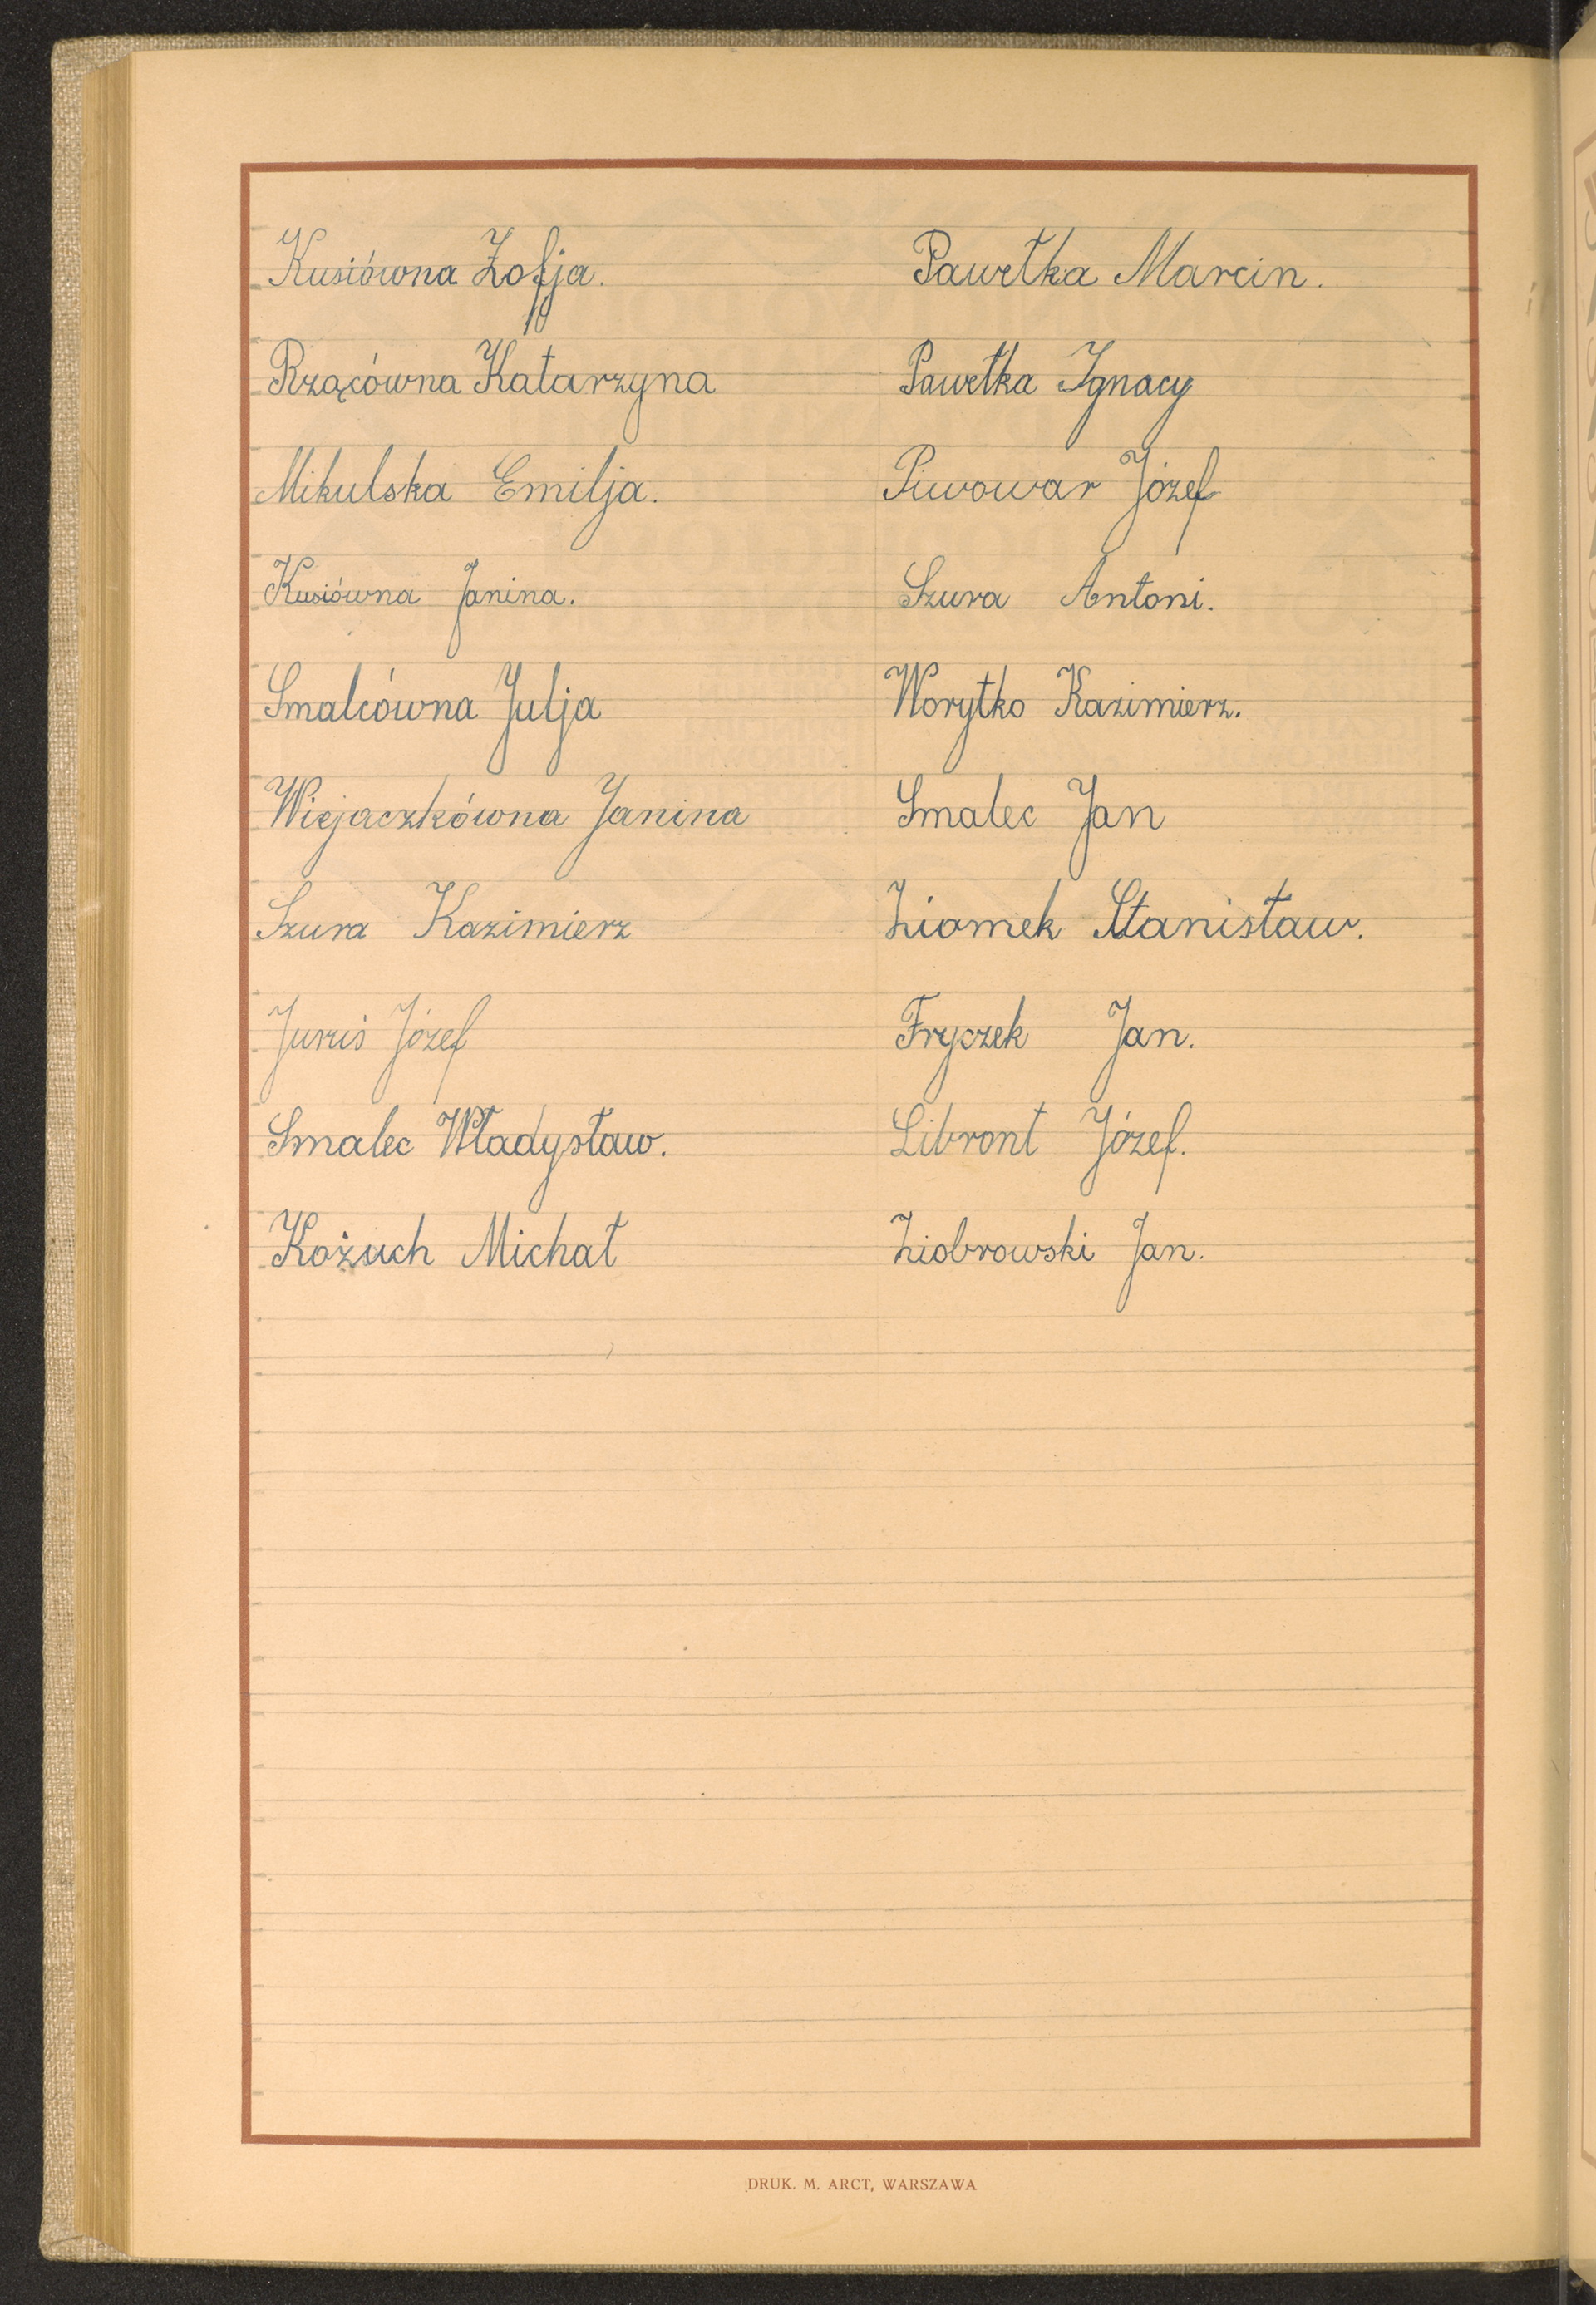 Kusiówna Zofja.
Rzącówna Katarzyna
Mikulska Emilja.
Kusiówna Janina.
Smalcówna Julja
Wiejaczkówna Janina
Szura Kazimierz
Juruś Józef
Smalec Władysław.
Kożuch Michał
Pawełka Marcin.
Pawełka Ignacy
Piwowar Józef
Szura Antoni.
Worytko Kazimierz.
Smalec Jan
Ziomek Stanisław.
Fryczek Jan.
Libront Józef.
Ziobrowski Jan.
DRUK. M. ARCT, WARSZAWA